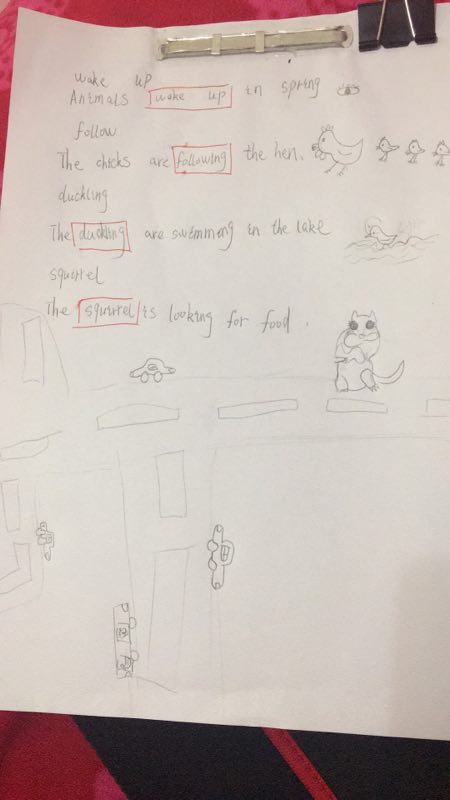 wake up
Animals wake up in spring
follow
The chicks are following the hen.
duckling
The duckling are swimming in the lake
squirrel
The squirrel is looking for food.